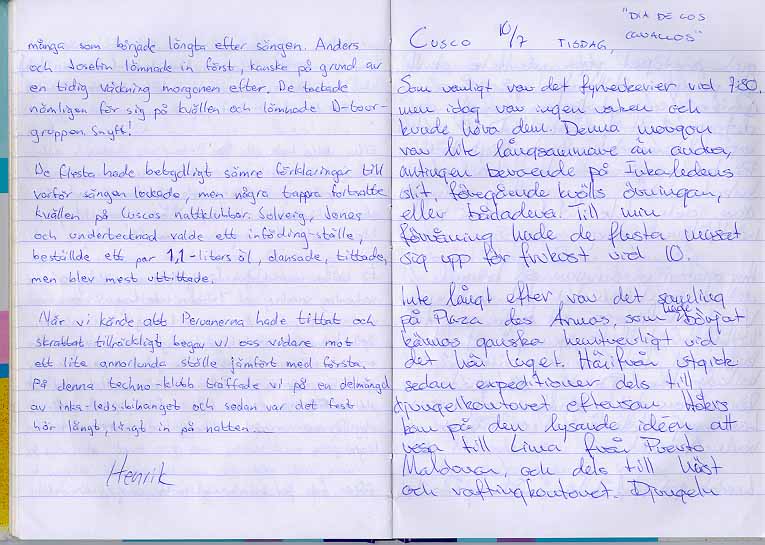 många som började längta efter sängen. Anders
och Josefin lämnade in först, kanske på grund av
en tidig väckning morgonen efter. De tackade
nämligen för sig på kvällen och lämnade D-tour-
gruppen. Snyft!
De flesta hade betydligt sämre förklaringar till
varför sängen lockade, men några tappra fortsatte
kvällen på Cuscos nattklubbar. Solveig, Jonas
och undertecknad valde ett inföding-ställe,
beställde ett par 1,1-liters öl, dansade, tittade,
men blev mest uttittade.
När vi kände att Peruanerna hade tittat och
skrattat tillräckligt begav vi oss vidare mot
ett lite annorlunda ställe jämfört med första.
På denna techno-klubb träffade vi på en delmängd
av inka-leds-bihanget och sedan var det fest
här långt, långt in på natten....
Henrik
Cusco 10/7 TISDAG, "DIA DE LOS
CAVALLOS"
Som vanligt var det fyrverkerier vid 7:30,
men idag var ingen vaken och
kunde höra dem. Denna morgon
var lite långsammare än andra,
antingen beroende på Inkaledens
slit, föregående kvälls övningar,
eller bådadera. Till min
förvåning hade de flesta masat
sig upp för frukost vid 10.
Inte långt efter, var det samling
på Plaza des Armas, som hade börjat
kännas ganska hemtrevligt vid
det här laget. Härifrån utgick
sedan expeditioner dels till
djungelkontoret eftersom
kom på den lysande idéen att
resa till Lima från Puerto
Maldonan, och dels till häst
och raftingkontoret. Djungeln